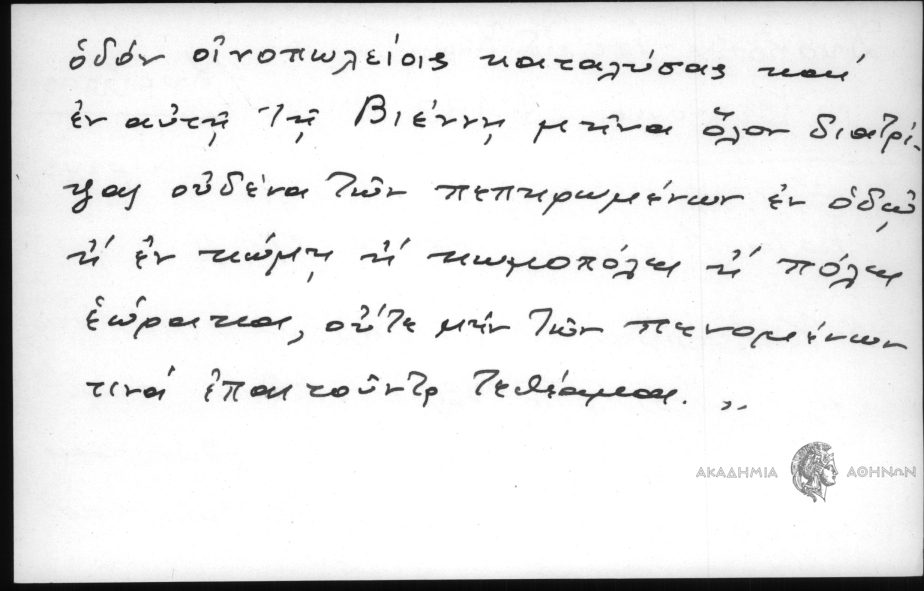 ὁδόν οἰνοπωλείοις καταλύσας καί
ἐν αὐτῇ τῇ Βιέννῃ μῆνα ὅλον διατρί-
ψας οὐδένα τῶν πεπηρωμένων ἐν ὁδῷ
ἤ ἐν κώμῃ ἤ κωμοπόλει ἤ πόλει
ἑώρακα, οὔτε μήν τῶν πενομένων
τινά ἐπαιτοῦντα τεθέαμαι. „
ΑΚΑΔΗΜΙΑ ΑΘΗΝΩΝ